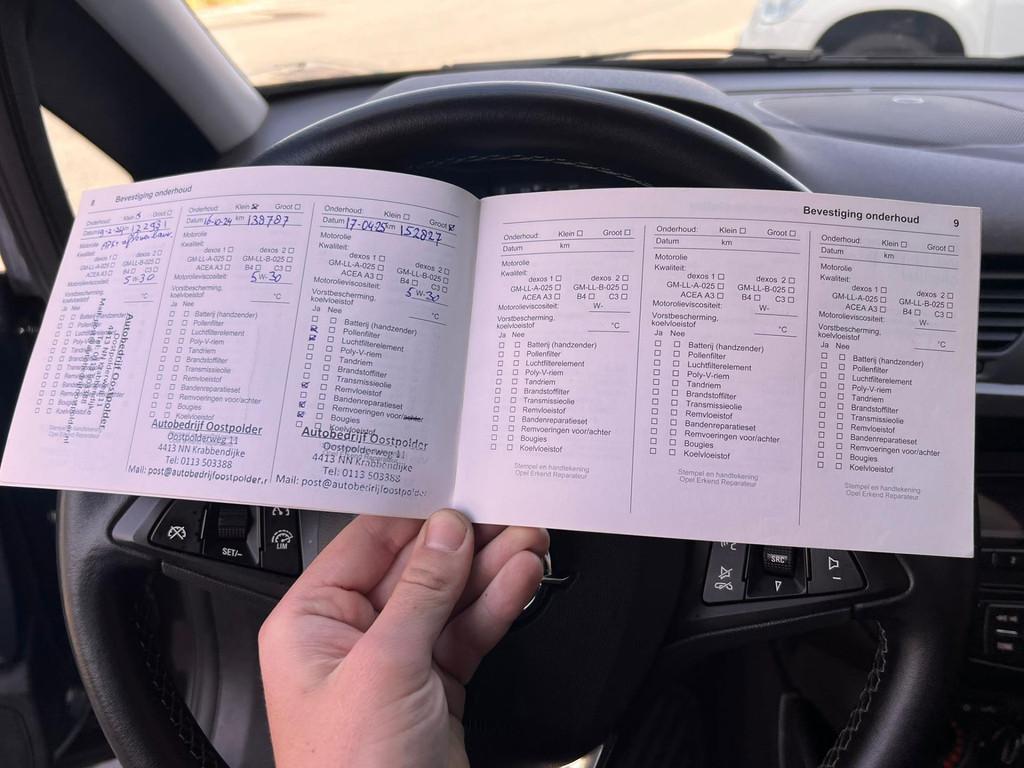 8 Bevestiging onderhoud
Onderhoud: Klein ☒ Groot ☐
Datum km
Motorolie
Kwaliteit:
dexos 1 ☐ dexos 2 ☐
GM-LL-A-025 ☐ GM-LL-B-025 ☐
ACEA A3 ☐ B4 ☐ C3 ☐
Motorolieviscositeit: 5W-30
Vorstbescherming, koelvloeistof °C
Ja Nee
Autobedrijf Oostpolder
Onderhoud: Klein ☒ Groot ☐
Datum 16-10-24 km 139787
Motorolie
Kwaliteit:
dexos 1 ☐ dexos 2 ☐
GM-LL-A-025 ☐ GM-LL-B-025 ☐
ACEA A3 ☐ B4 ☐ C3 ☐
Motorolieviscositeit: 5W-30
Vorstbescherming,
koelvloeistof °C
Ja Nee
☐ ☐ Batterij (handzender)
☐ ☐ Pollenfilter
☐ ☐ Luchtfilterelement
☐ ☐ Poly-V-riem
☐ ☐ Tandriem
☐ ☐ Brandstoffilter
☐ ☐ Transmissieolie
☐ ☐ Remvloeistof
☐ ☐ Bandenreparatieset
☐ ☐ Remvoeringen voor/achter
☐ ☐ Bougies
☐ ☐ Koelvloeistof
Autobedrijf Oostpolder
Oostpolderweg 11
4413 NN Krabbendijke
Tel: 0113 503388
Mail: post@autobedrijfoostpolder.r
Onderhoud: Klein ☐ Groot ☒
Datum 17-04-25 km 152827
Motorolie
Kwaliteit:
dexos 1 ☐ dexos 2 ☐
GM-LL-A-025 ☐ GM-LL-B-025 ☐
ACEA A3 ☐ B4 ☐ C3 ☐
Motorolieviscositeit: 5W-30
Vorstbescherming,
koelvloeistof °C
Ja Nee
Batterij (handzender)
Pollenfilter
Luchtfilterelement
Poly-V-riem
Tandriem
Brandstoffilter
Transmissieolie
Remvloeistof
Bandenreparatieset
Remvoeringen voor/achter
Bougies
Koelvloeistof
Autobedrijf Oostpolder
Oostpolderweg 11
4413 NN Krabbendijke
Tel: 0113 503388
Mail: post@autobedrijfoostpolde
Bevestiging onderhoud 9
Onderhoud: Klein ☐ Groot ☐
Datum km
Motorolie
Kwaliteit:
dexos 1 ☐ dexos 2 ☐
GM-LL-A-025 ☐ GM-LL-B-025 ☐
ACEA A3 ☐ B4 ☐ C3 ☐
Motorolieviscositeit: W-
Vorstbescherming,
koelvloeistof °C
Ja Nee
☐ ☐ Batterij (handzender)
☐ ☐ Pollenfilter
☐ ☐ Luchtfilterelement
☐ ☐ Poly-V-riem
☐ ☐ Tandriem
☐ ☐ Brandstoffilter
☐ ☐ Transmissieolie
☐ ☐ Remvloeistof
☐ ☐ Bandenreparatieset
☐ ☐ Remvoeringen voor/achter
☐ ☐ Bougies
☐ ☐ Koelvloeistof
Stempel en handtekening
Opel Erkend Reparateur
Onderhoud: Klein ☐ Groot ☐
Datum km
Motorolie
Kwaliteit:
dexos 1 ☐ dexos 2 ☐
GM-LL-A-025 ☐ GM-LL-B-025 ☐
ACEA A3 ☐ B4 ☐ C3 ☐
Motorolieviscositeit: W-
Vorstbescherming,
koelvloeistof °C
Ja Nee
☐ ☐ Batterij (handzender)
☐ ☐ Pollenfilter
☐ ☐ Luchtfilterelement
☐ ☐ Poly-V-riem
☐ ☐ Tandriem
☐ ☐ Brandstoffilter
☐ ☐ Transmissieolie
☐ ☐ Remvloeistof
☐ ☐ Bandenreparatieset
☐ ☐ Remvoeringen voor/achter
☐ ☐ Bougies
☐ ☐ Koelvloeistof
Stempel en handtekening
Opel Erkend Reparateur
Onderhoud: Klein ☐ Groot ☐
Datum km
Motorolie
Kwaliteit:
dexos 1 ☐ dexos 2 ☐
GM-LL-A-025 ☐ GM-LL-B-025 ☐
ACEA A3 ☐ B4 ☐ C3 ☐
Motorolieviscositeit: W-
Vorstbescherming,
koelvloeistof °C
Ja Nee
☐ ☐ Batterij (handzender)
☐ ☐ Pollenfilter
☐ ☐ Luchtfilterelement
☐ ☐ Poly-V-riem
☐ ☐ Tandriem
☐ ☐ Brandstoffilter
☐ ☐ Transmissieolie
☐ ☐ Remvloeistof
☐ ☐ Bandenreparatieset
☐ ☐ Remvoeringen voor/achter
☐ ☐ Bougies
☐ ☐ Koelvloeistof
Stempel en handtekening
Opel Erkend Reparateur
SET/-
LIM
SRC